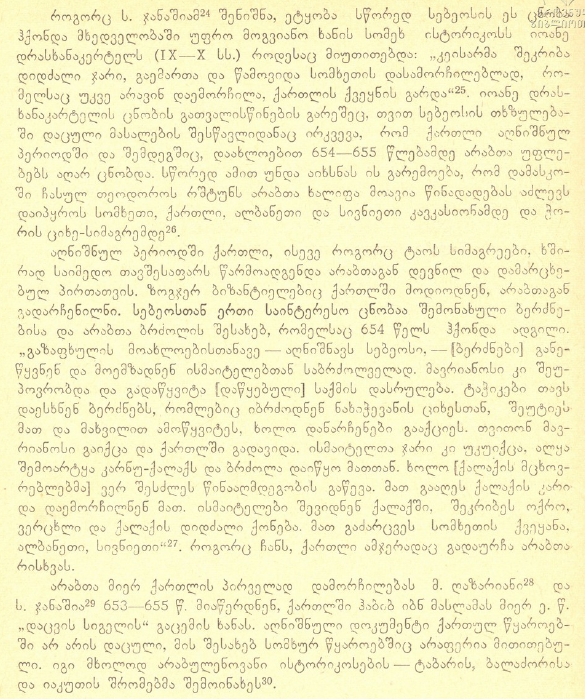 როგორც ს. ჯანაშიამ²⁴ შენიშნა, ეტყობა სწორედ სებეოსის ეს ცნობა
ჰქონდა მხედველობაში უფრო მოგვიანო ხანის სომეხ ისტორიკოსს იოანე
დრასხანაკერტელს (IX—X სს.) როდესაც მიუთითებდა: „კეისარმა შეკრიბა
დიდძალი ჯარი, გაემართა და წამოვიდა სომხეთის დასამორჩილებლად, რო-
მელსაც უკვე არავინ დაემორჩილა, ქართლის ქვეყნის გარდა“²⁵. იოანე დრას-
ხანაკარტელის ცნობის გათვალისწინების გარეშეც, თვით სებეოსის თხზულება-
ში დაცული მასალების შესწავლიდანაც ირკვევა, რომ ქართლი აღნიშნულ
პერიოდში და შემდეგშიც, დაახლოებით 654—655 წლებამდე არაბთა უფლე-
ბებს აღარ ცნობდა. სწორედ ამით უნდა აიხსნას ის გარემოება, რომ დამასკო-
ში ჩასულ თეოდოროს რშტუნს არაბთა ხალიფა მოავია წინადადებას აძლევს
დაიპყროს სომხეთი, ქართლი, ალბანეთი და სივნიეთი კავკასიონამდე და ჭო-
რის ციხე-სიმაგრემდე²⁶.
აღნიშნულ პერიოდში ქართლი, ისევე როგორც ტაოს სიმაგრეები, ხში-
რად საიმედო თავშესაფარს წარმოადგენდა არაბთაგან დევნილ და დამარცხე-
ბულ პირთათვის. ზოგჯერ ბიზანტიელებიც ქართლში მოდიოდნენ, არაბთაგან
გადარჩენილნი. სებეოსთან ერთი საინტერესო ცნობაა შემონახული ბერძნე-
ბისა და არაბთა ბრძოლის შესახებ, რომელსაც 654 წელს ჰქონდა ადგილი.
„გაზაფხულის მოახლოებისთანავე — აღნიშნავს სებეოსი, — [ბერძნები] განე-
წყვნენ და მოემზადნენ ისმაიტელებთან საბრძოლველად. მავრიანოსი კი შეუ-
პოვრობდა და გადაწყვიტა [დაწყებული] საქმის დასრულება. ტაჰიკები თავს
დაესხნენ ბერძნებს, რომლებიც იბრძოდნენ ნახიჰევანის ციხესთან, შეუტიეს
მათ და მახვილით ამოწყვიტეს, ხოლო დანარჩენები გააქციეს. თვითონ მავ-
რიანოსი გაიქცა და ქართლში გადავიდა. ისმაიტელთა ჯარი კი უკუიქცა, ალყა
შემოარტყა კარნუ-ქალაქს და ბრძოლა დაიწყო მათთან. ხოლო [ქალაქის მცხოვ-
რებლებმა] ვერ შესძლეს წინააღმდეგობის გაწევა. მათ გააღეს ქალაქის კარი
და დაემორჩილნენ მათ. ისმაიტელები შევიდნენ ქალაქში, შეკრიბეს ოქრო,
ვერცხლი და ქალაქის დიდძალი ქონება. მათ გაძარცვეს სომხეთის ქვეყანა,
ალბანეთი, სივნიეთი“²⁷. როგორც ჩანს, ქართლი ამჯერადაც გადაურჩა არაბთა
რისხვას.
არაბთა მიერ ქართლის პირველად დამორჩილებას მ. ღაზარიანი²⁸ და
ს. ჯანაშია²⁹ 653—655 წ. მიაწერდნენ, ქართლში ჰაბიბ იბნ მასლამას მიერ ე. წ.
„დაცვის სიგელის“ გაცემის ხანას. აღნიშნული დოკუმენტი ქართულ წყაროებ-
ში არ არის დაცული, მის შესახებ სომხურ წყაროებშიც არაფერია მითითებუ-
ლი. იგი მხოლოდ არაბულენოვანი ისტორიკოსების — ტაბარის, ბალაძორისა
და იაკუთის შრომებმა შემოინახეს³⁰.